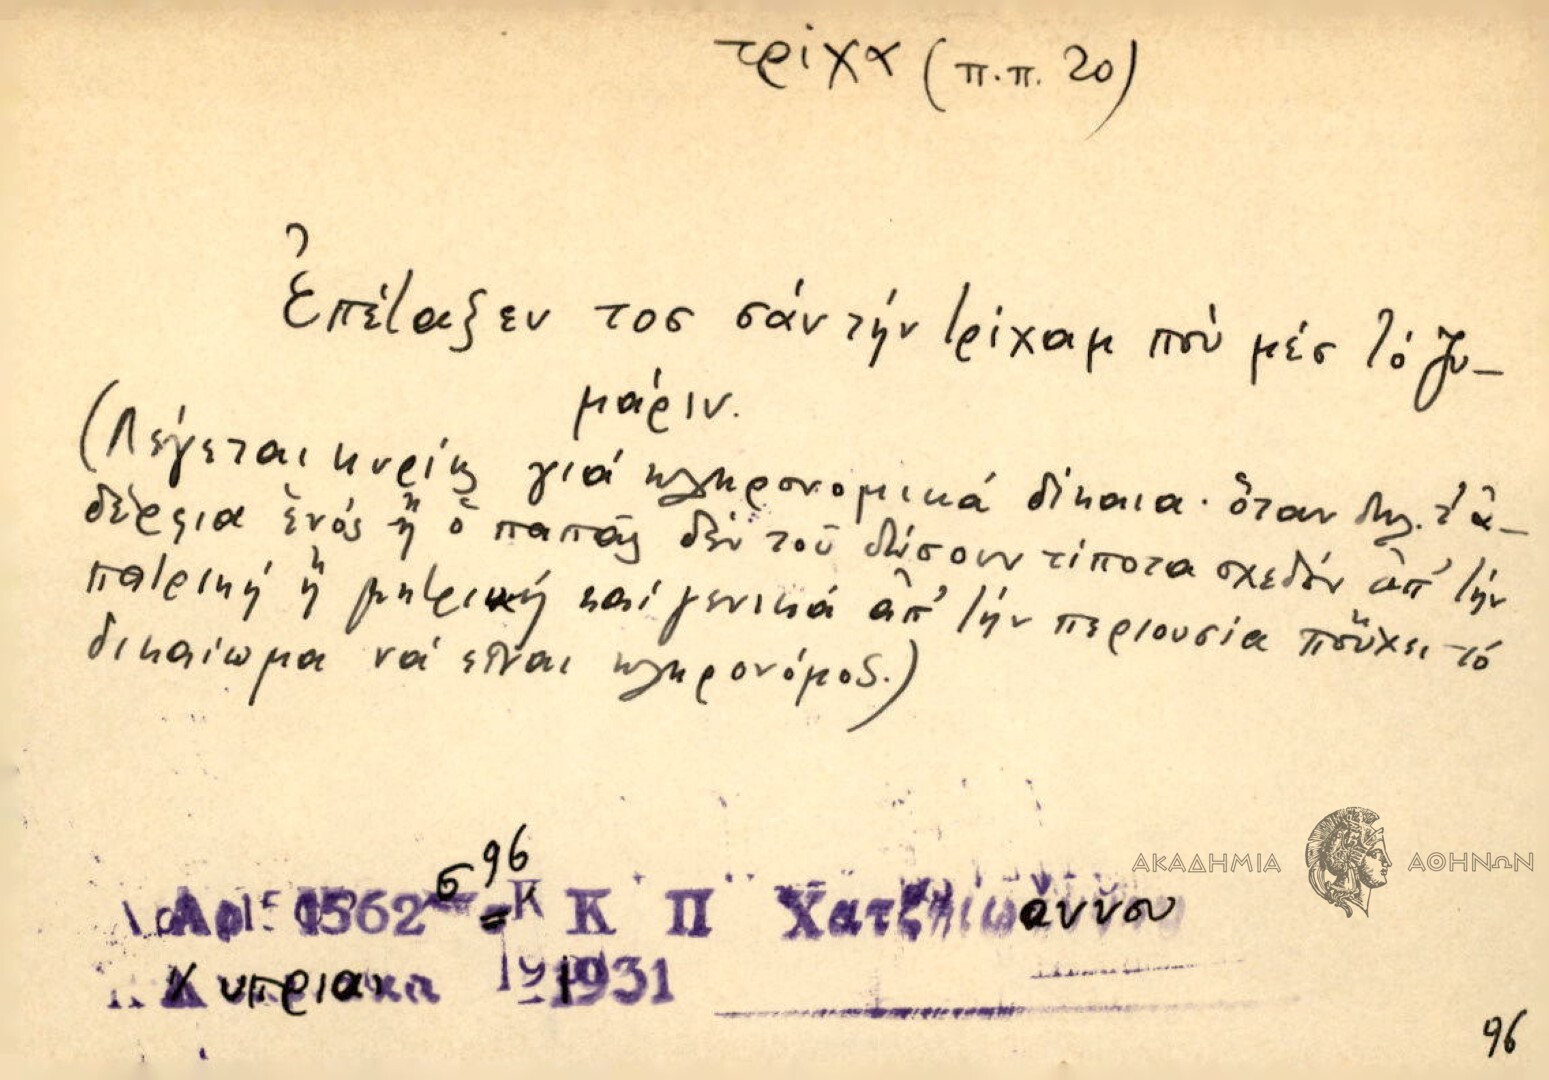 τρίχα (π.π. 20)
Ἐπέταξεν τοσ σάν τήν τρίχαμ πού μέσ τό ζυ-
μάριν.
(Λέγεται κυρίως γιά κληρονομικά δίκαια· ὅταν δηλ. τ' ἀ-
δέρφια ἑνός ἤ ὁ παπᾶς δέν τοῦ δώσουν τίποτα σχεδόν ἀπ' τήν
πατρική ἤ μητρική καί γενικά ἀπ' τήν περιουσία ποὔχει τό
δικαίωμα νά εἶναι κληρονόμος.)
Αρ 1562 σ 96 Κ Π Χατζηιωάννου
Κυπριακα 1931
ΑΚΑΔΗΜΙΑ ΑΘΗΝΩΝ
96